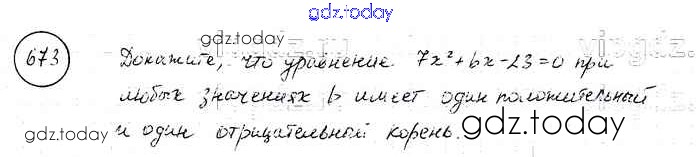 gdz.today
673 Докажите, что уравнение 7x²+bx-23=0 при
любых значениях b имеет один положительный
и один отрицательный корень.
gdz.today
gdz.today
gdz.today